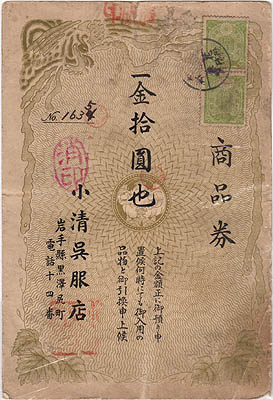 商品券
一金拾圓也
上記の金額正に御預り申
置候何時にても御入用の
品物と御引換申上候
小清呉服店
岩手縣黒澤尻町
電話十四番
No 163
消印